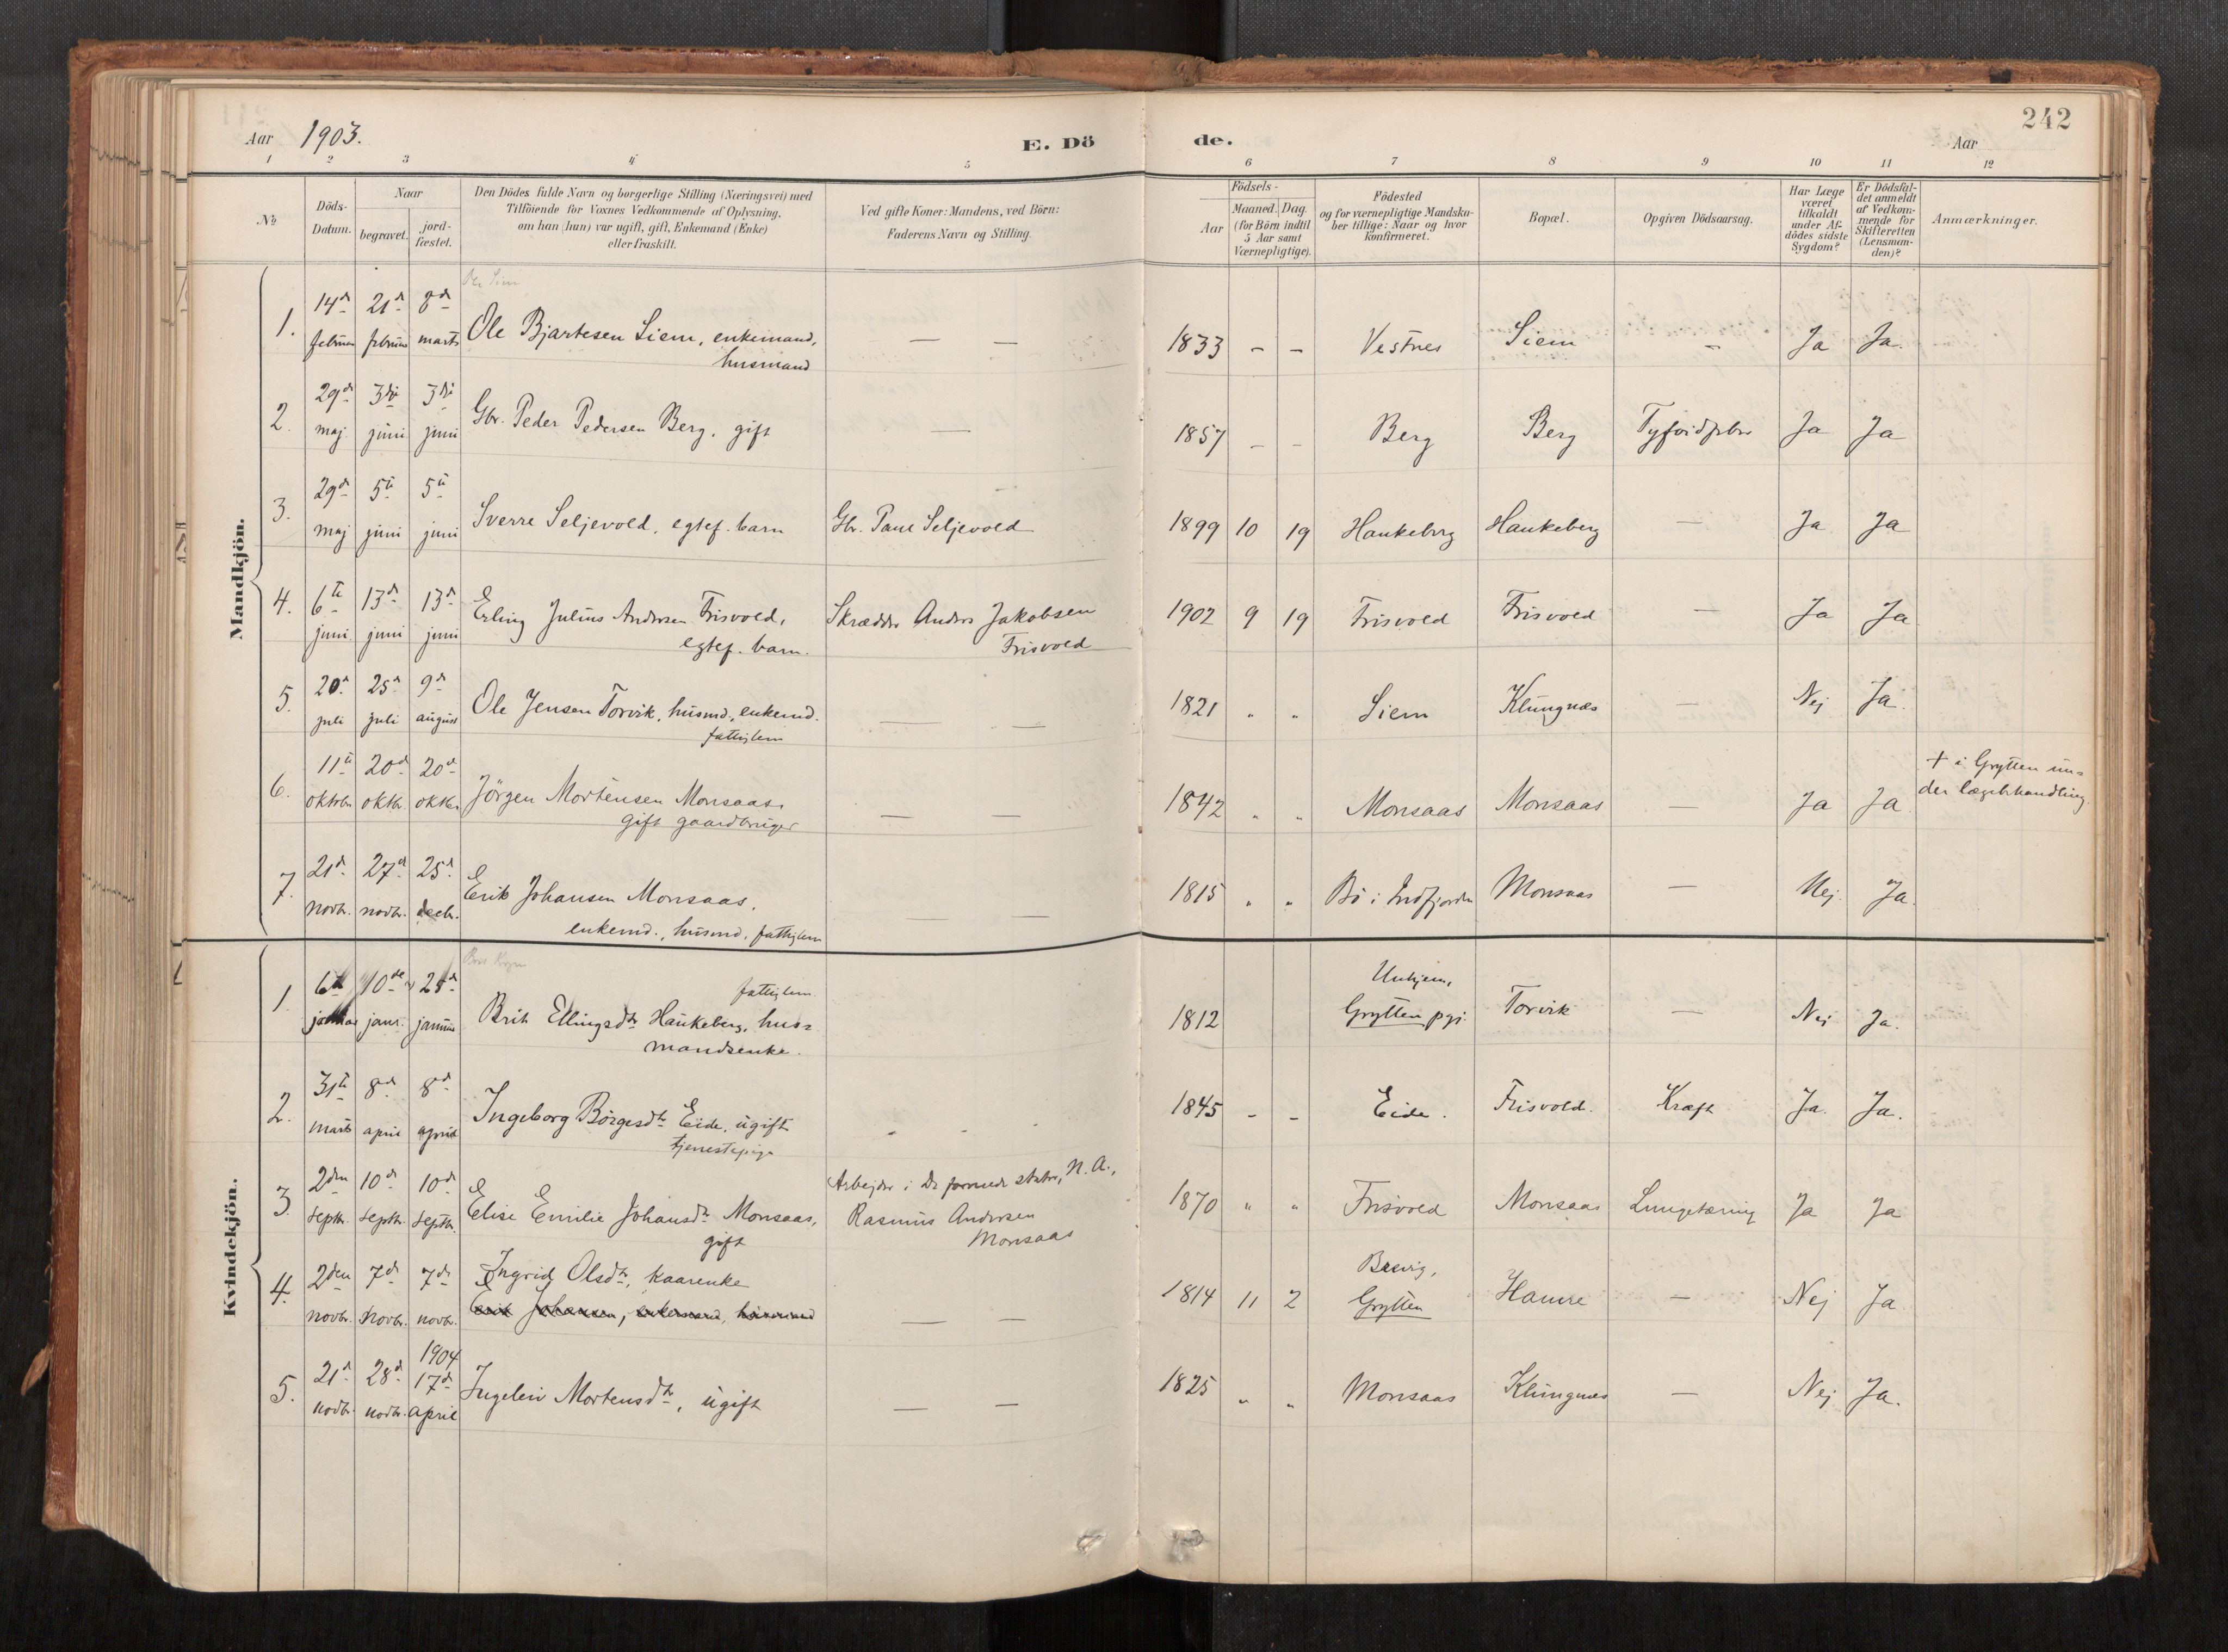 Aar 1903.
E. Dö
de.
Aar
242
1 2 3 4 5 6 7 8 9 10 11 12
№
Döds-
Datum.
Naar
begravet.
jord-
fæstet.
Den Dödes fulde Navn og borgerlige Stilling (Næringsvei) med
Tilföiende for Voxnes Vedkommende af Oplysning,
om han (hun) var ugift, gift, Enkemand (Enke)
eller fraskilt.
Ved gifte Koner: Mandens, ved Börn:
Faderens Navn og Stilling.
Födsels-
Aar
Maaned. Dag.
(for Börn indtil
5 Aar samt
Værnepligtige).
Födested
og for værnepligtige Mandska-
ber tillige: Naar og hvor
konfirmeret.
Bopæl.
Opgiven Dödsaarsag.
Har Læge
været
tilkaldt
under Af-
dödes sidste
Sygdom?
Er Dödsfal-
det anmeldt
af Vedkom-
mende for
Skifteretten
(Lensman-
den)?
Anmærkninger.
Mandkjön.
1. 14d 21d 8d
februar februar marts Ole Bjartesen Siem, enkemand,
husmand
— — 1833 - - Vestnes Siem - Ja Ja.
2. 29d 3di 3di
maj juni juni Gbr. Peder Pedersen Berg, gift
— 1857 - - Berg Berg Tyfoidfeber Ja Ja
3. 29d 5te 5te
maj juni juni Sverre Seljevold, egtef. barn Gbr. Paul Seljevold 1899 10 19 Haukeberg Haukeberg — Ja Ja
4. 6te 13d 13d
juni juni juni Erling Julius Andersen Frisvold,
egtef. barn.
Skrædder Anders Jakobsen
Frisvold
1902 9 19 Frisvold Frisvold — Ja Ja
5. 20d 25d 9d
juli juli august Ole Jensen Torvik, husmd., enkemd.
fattiglem
— — 1821 " " Siem Klungnæs — Nej Ja.
6. 11te 20d 20d
oktober oktbr oktbr Jörgen Mortensen Monsaas,
gift gaardbruger
— — 1842 " " Monsaas Monsaas — Ja Ja
+ i Grytten un=
der lægebehandling.
7. 21d 27d 25d
novbr. novbr. decbr. Erik Johansen Monsaas,
enkemd., husmd, fattiglem
— — 1815 " " Bö i Indfjorden Monsaas — Nej. Ja.
Kvindekjön.
1. 6te 10de 25d
januar janr. januar
fattiglem
Brit Ellingsdtr Haukeberg, hus=
mandsenke.
1812
Unhjem,
Grytten pgj.
Torvik — Nei Ja.
2. 31te 8d 8d
marts april april Ingeborg Börgesdtr Eide, ugift
tjenestepige
1845 - - Eide. Frisvold. Kræft Ja. Ja.
3. 2den 10d 10d
septbr. septbr. septbr. Elise Emilie Johansdtr Monsaas,
gift
Arbejder i De forenede stater, N.A.,
Rasmus Andersen
Monsaas
1870 " " Frisvold Monsaas Lungetæring Ja Ja
4. 2den 7d 7d
novbr. novbr. novbr. Ingrid Olsdtr, kaarenke
Erik Johansen, enkemand, husmand
— — 1814 11 2
Grytten
Hamre — Nej Ja
5. 21d 28d 1904
17d
novbr. novbr. april Ingeleiv Mortensdtr, ugift
— — 1825 " " Monsaas Klungnes — Nej Ja.